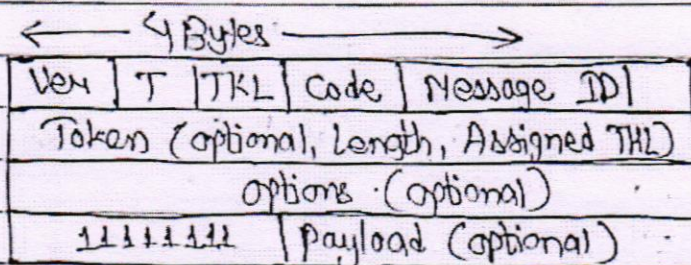 4 Bytes
Ver T TKL Code Message ID
Token (optional, Length, Assigned TKL)
options (optional)
11111111 Payload (optional)